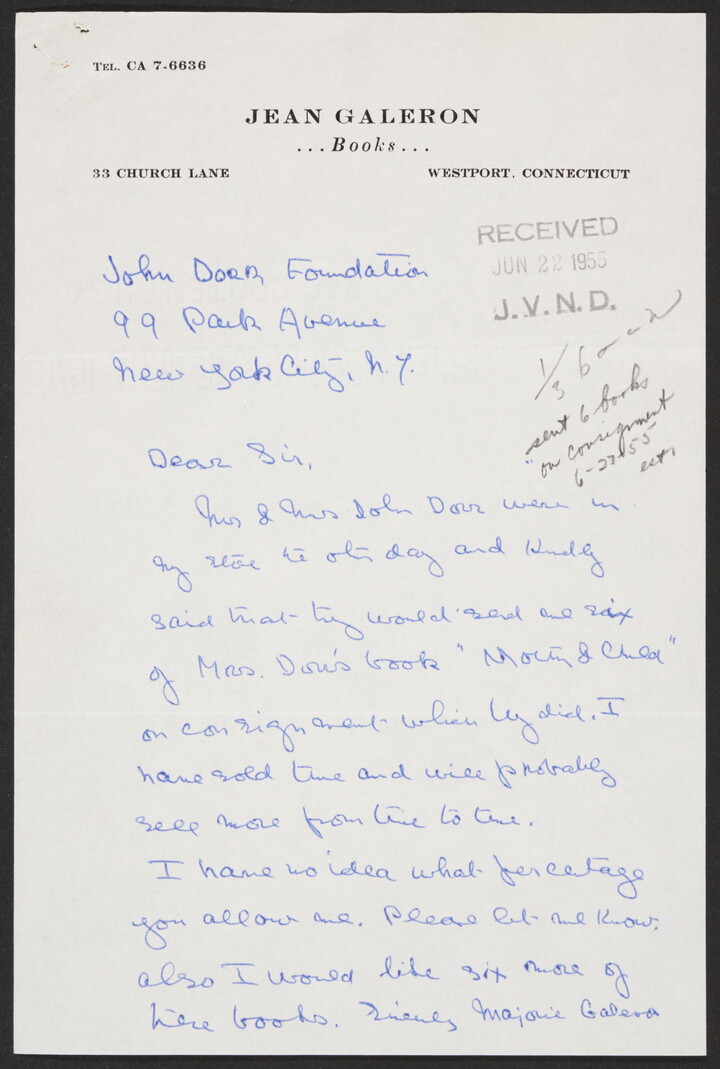 TEL. CA 7-6636
JEAN GALERON
...Books...
33 CHURCH LANE
WESTPORT, CONNECTICUT
RECEIVED
JUN 22 1955
J.V.N.D.
John Dorr Foundation
99 Park Avenue
New York City, N.Y.
1/3 6
sent 6 books
on consignment
6-27-55
est.
Dear Sir,
Mr & Mrs John Dorr were in
my store the other day and kindly
said that they would send me six
of Mrs. Dorr's book "Mother & Child"
on consignment which they did. I
have sold and will probably
sell more from time to time.
I have no idea what percentage
you allow me. Please let me know.
also I would like six more of
these books. Sincerely Marjorie Galeron